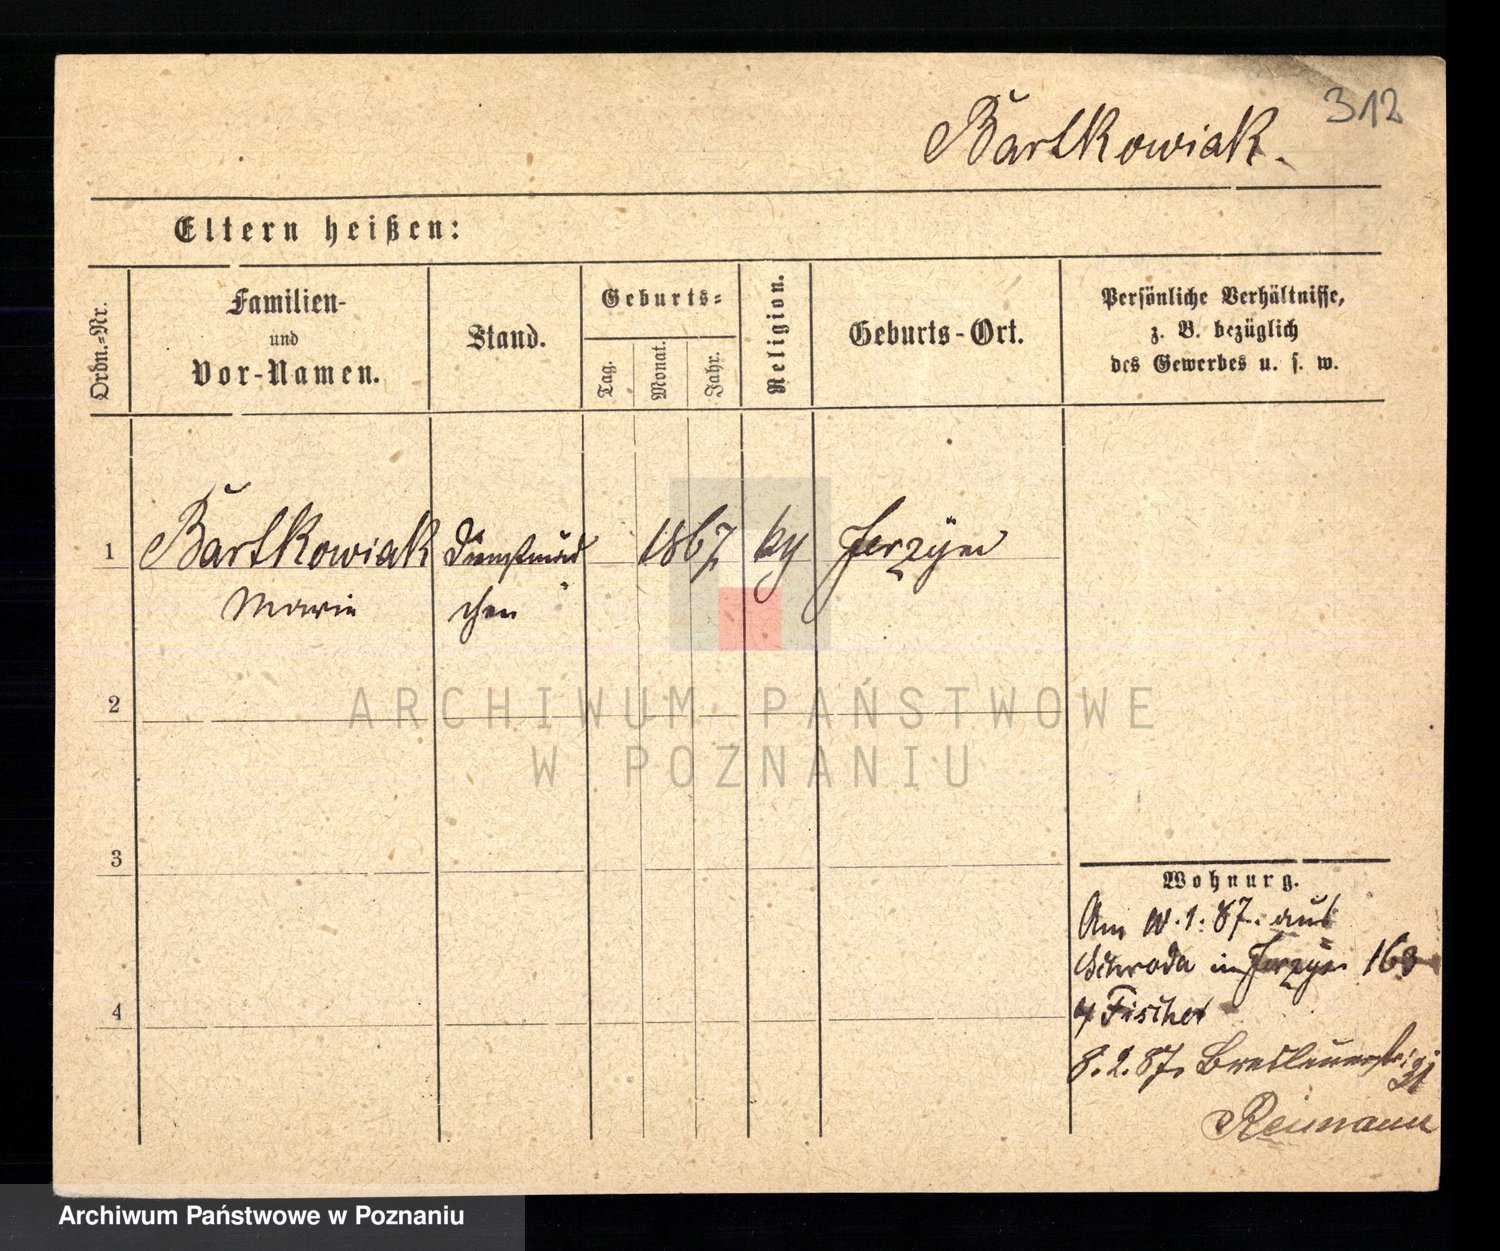 312
Bartkowiak.
Eltern heißen:
Ordn.-Nr.
Familien-
und
Vor-Namen.
Stand.
Geburts-
Tag.
Monat.
Jahr.
Religion.
Geburts-Ort.
Persönliche Verhältnisse,
z. B. bezüglich
des Gewerbes u. s. w.
1 Bartkowiak Dienstmäd 1867 Jerzyce
Marie chen
2
ARCHIWUM PAŃSTWOWE
W POZNANIU
3
Wohnung.
Am 1. 87. aus
Schroda in Jerzyce 163
Fischer
4
8. 2. 87. Breslauerstr.
Reimann
Archiwum Państwowe w Poznaniu